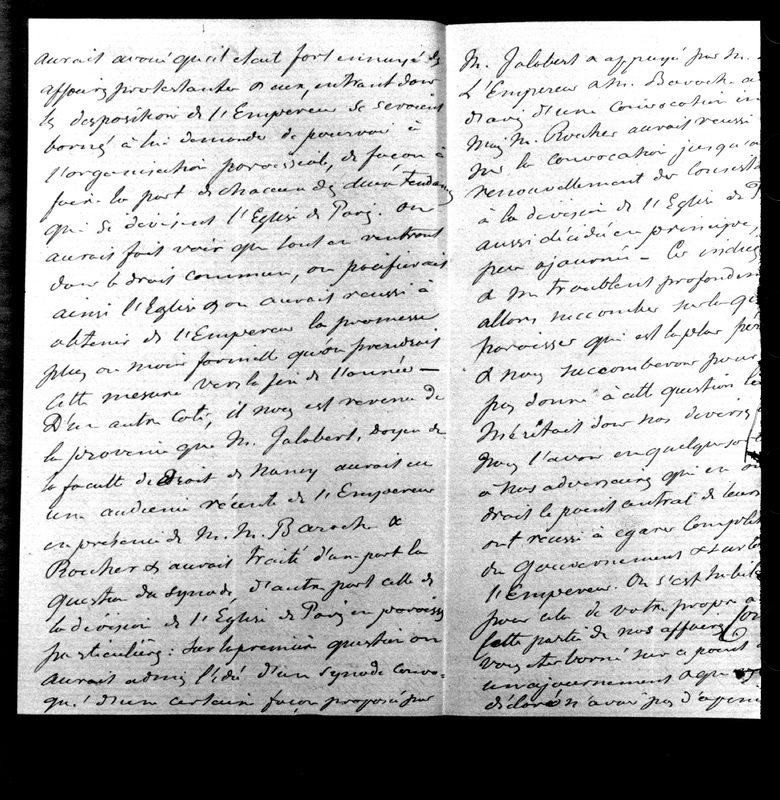 aurait avoué qu'il était fort ennuyé des
affaires protestantes & eux, entrant dans
les dispositions de l'Empereur se seraient
bornés à lui demander de pourvoir à
l'organisation paroissiale, de façon à
faire la part de chacune des deux tendances
qui se divisent l'Eglise de Paris. On
aurait fait voir que tout en rentrant
dans le droit commun, on pacifierait
ainsi l'Eglise & on aurait réussi à
obtenir de l'Empereur la promesse
plus ou moins formelle qu'on prendrait
cette mesure vers la fin de l'année —
D'un autre coté, il nous est revenu de
la province que M. Jalabert, Doyen de
la faculté de Droit de Nancy aurait eu
une audience récente de l'Empereur
en présence de M. M. Baroche &
Rouher & aurait traité d'une part la
question du Synode, d'autre part celle de
la division de l'Eglise de Paris en paroisses
particulières : Sur la première question on
aurait admis l'idée d'un Synode convo-
qué d'une certaine façon proposée par
M. Jalabert & appuyé par M.
L'Empereur & M. Baroche
d'avis d'une convocation
mais M. Rouher aurait réussi
la convocation jusqu'
renouvellement des Consist
à la division de l'Eglise de P
aussi décidée en principe,
peu ajournée — Ces
& me troublent profondém
allons succomber sur la q
paroisses qui est la plus
& nous succomberons pour
pas donné à cette question l
méritait dans nos divers
Nous l'avons en quelque so
à nos adversaires qui en
droit le point central de leurs
ont réussi à égarer complèt
du gouvernement & surto
l'Empereur. On s'est
pour cela de votre propre
cette partie de nos affaires
vous êtes borné sur ce point
un ajournement & que
déclaré n'avoir pas d'opini